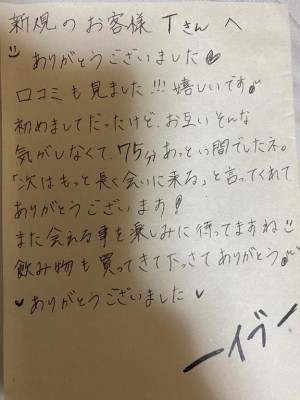 新規のお客様 Tさんへ
ありがとうございました
口コミも見ました!!!嬉しいです
初めましてだったけど、お互いそんな
気がしなくて、75分あっという間でしたネ。
「次はもっと長く会いに来る」と言ってくれて
ありがとうございます!
また会える事を楽しみに待ってますね
飲み物も買ってきて下さってありがとう
ありがとうございました
ーイブー